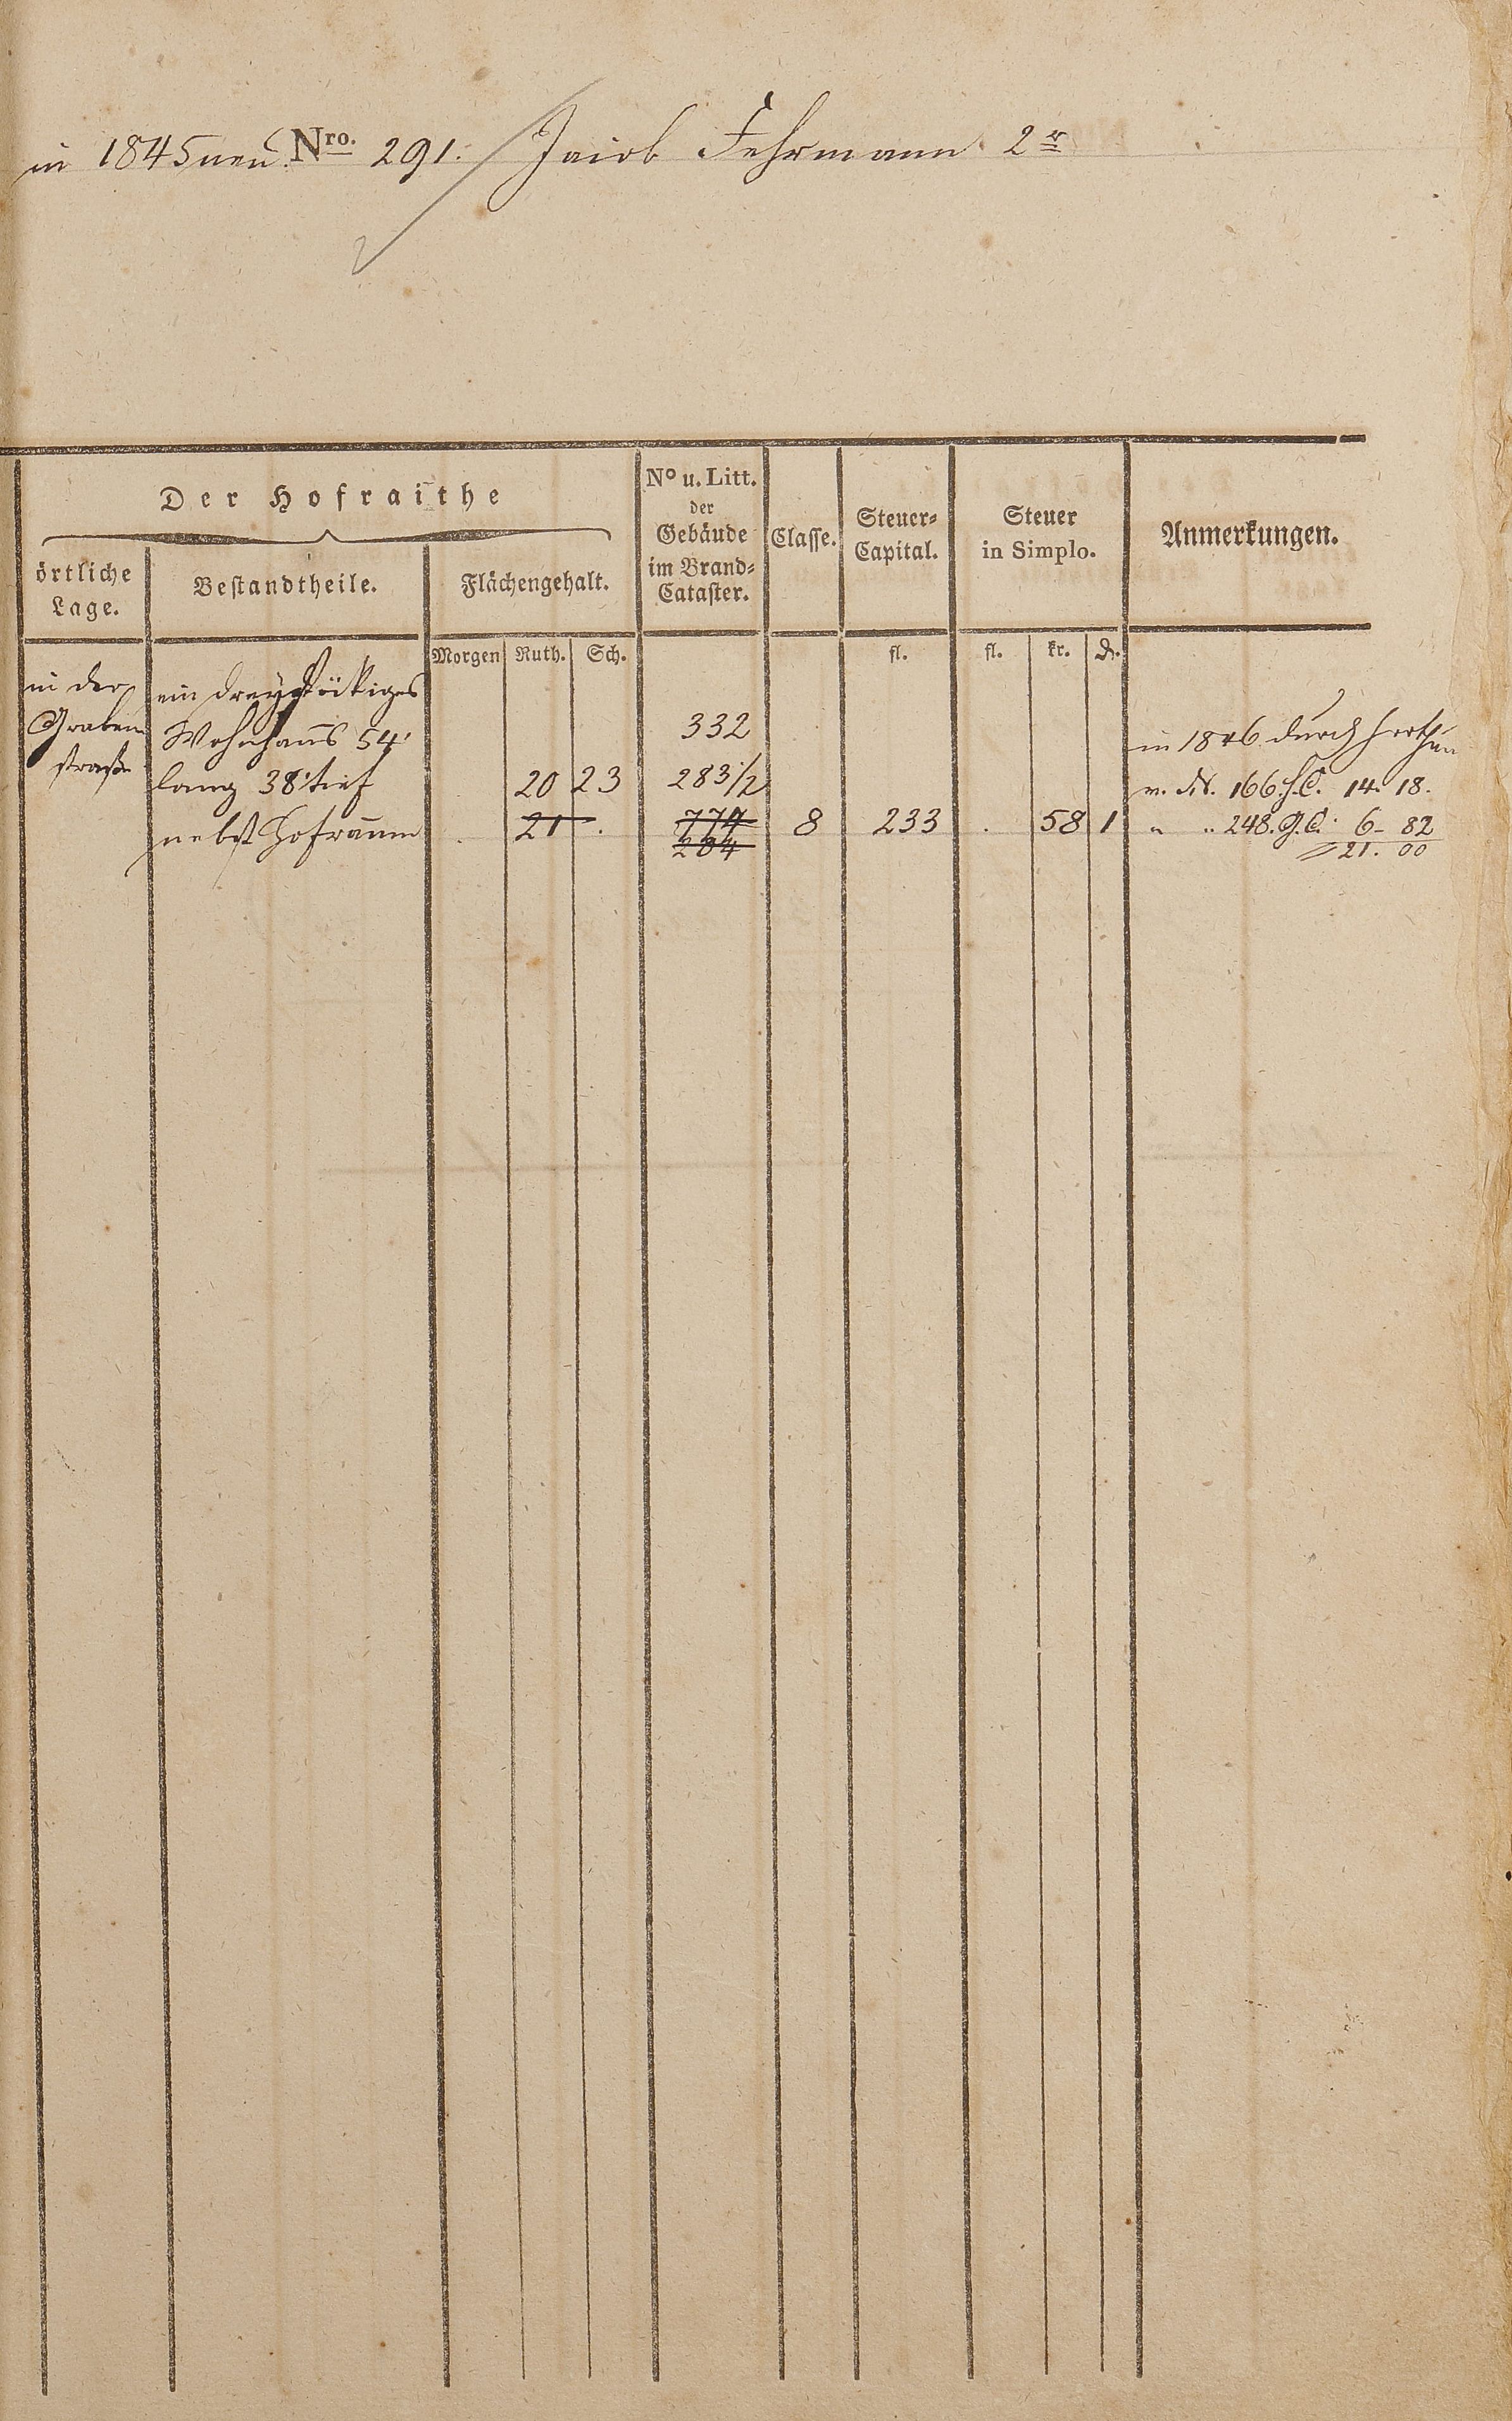 in 1845 neu. Nro. 291. Jacob Fehrmann 2r
Der Hofraithe
örtliche
Lage.
Bestandtheile.
Flächengehalt.
No u. Litt.
der
Gebäude
im Brand-
Cataster.
Classe.
Steuer-
Capital.
Steuer
in Simplo.
Anmerkungen.
Morgen Ruth. Sch. fl. fl. kr. d.
in der
Graben
straße
ein dreystökiges
Wohnhaus 54'
lang 38' tief
nebst Hofraum
20 23
21 .
332
283 1/2
774
284
8 233 . 58 1
in 1846 durch
v. N. 166. H.C. 14. 18.
" " 248. G.C. 6- 82
21. 00